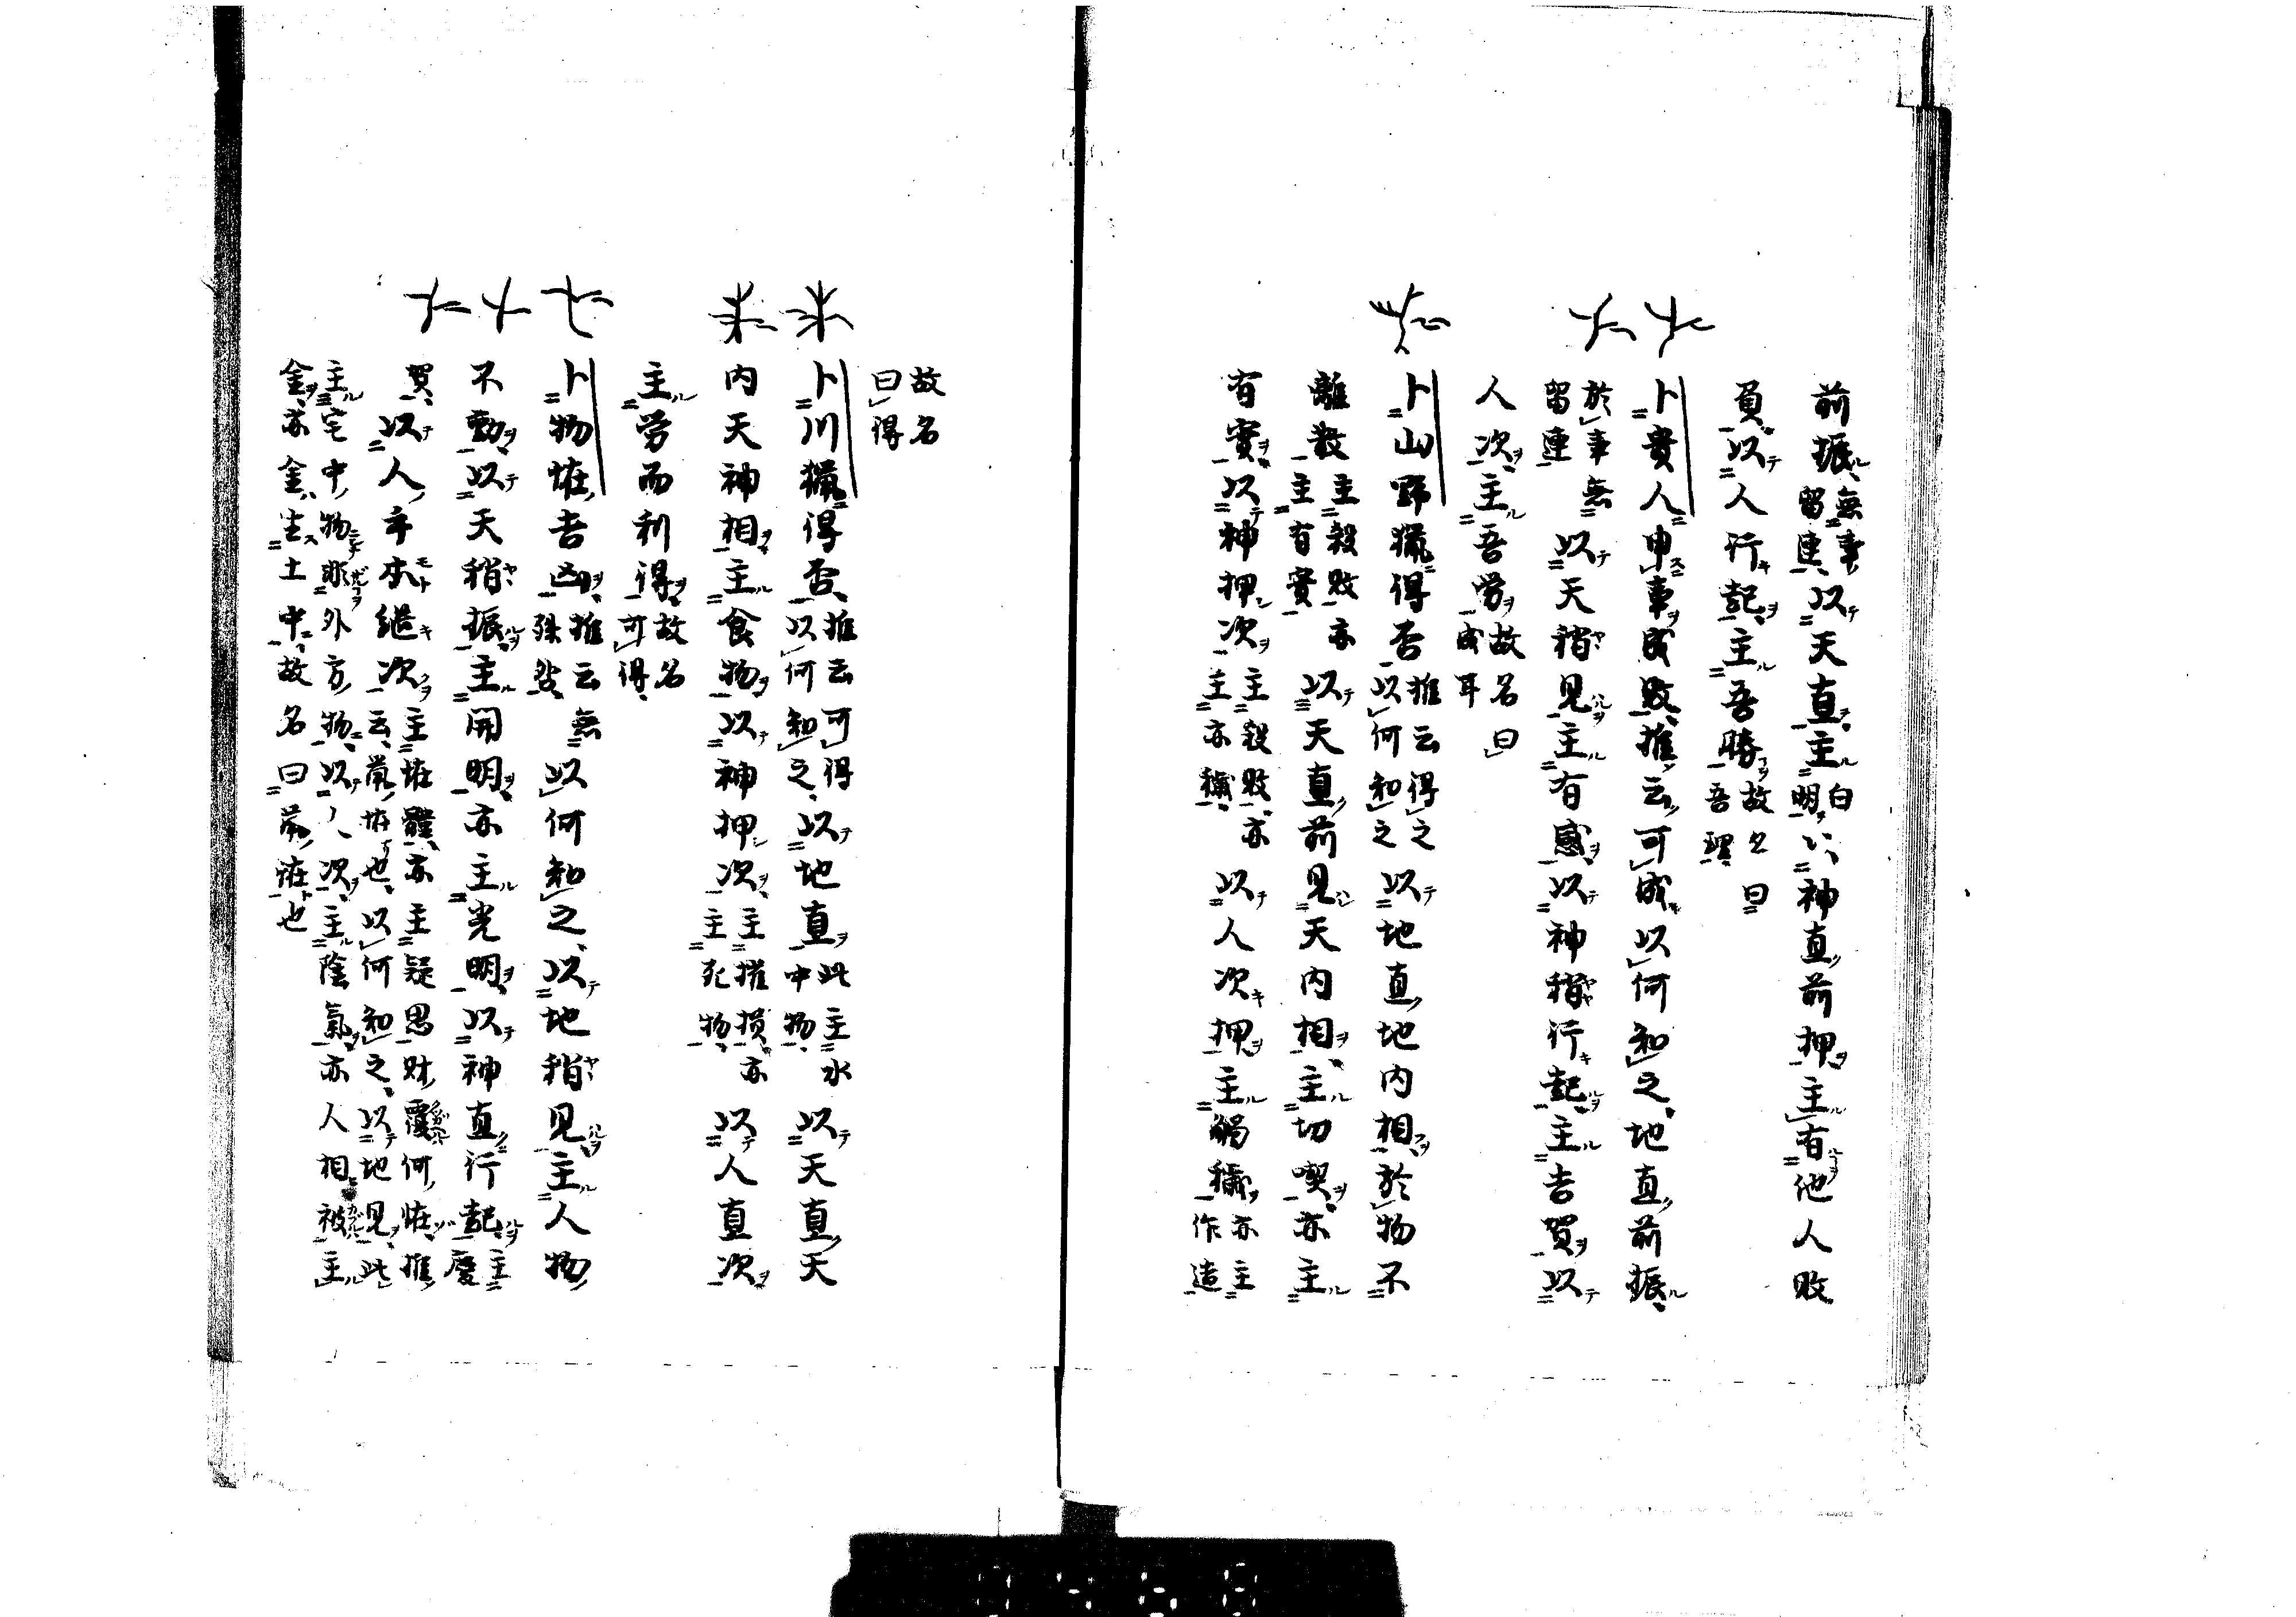 前振無事留連以天直主明白以神直前押主有他人敗
負以人行起主吾勝故名曰吾理
卜貴人申事成敗推云可成以何知之地直前振
於事無留連以天稍見主有感以神稍行起主吉賀以
人次主吾労故名曰成耳
卜山野猟得否推云得之以何知之以地直地内相於物不
離散主殺敗亦主有実以天直前見天内相主切喫亦主
有実以神押次主殺敗亦主亦穢以人次押主觸穢亦主作造
故名曰得
卜川猟得否推云可得以何知之以地直此主水中物以天直天
内天神相主食物以神押次主摧損亦主死物以人直次
主労而利得故名可得
卜物恠吉凶推云無殊咎以何知之以地稍見主人物
不動以天稍振主開明亦主光明以神直行起主慶
賀以人手本継次主恠體亦主疑思財覆何恠推云恠也以何知之以地見此
主宅中物形外方物以人次主陰氣亦人相被主
金亦金生土中故名曰恠也